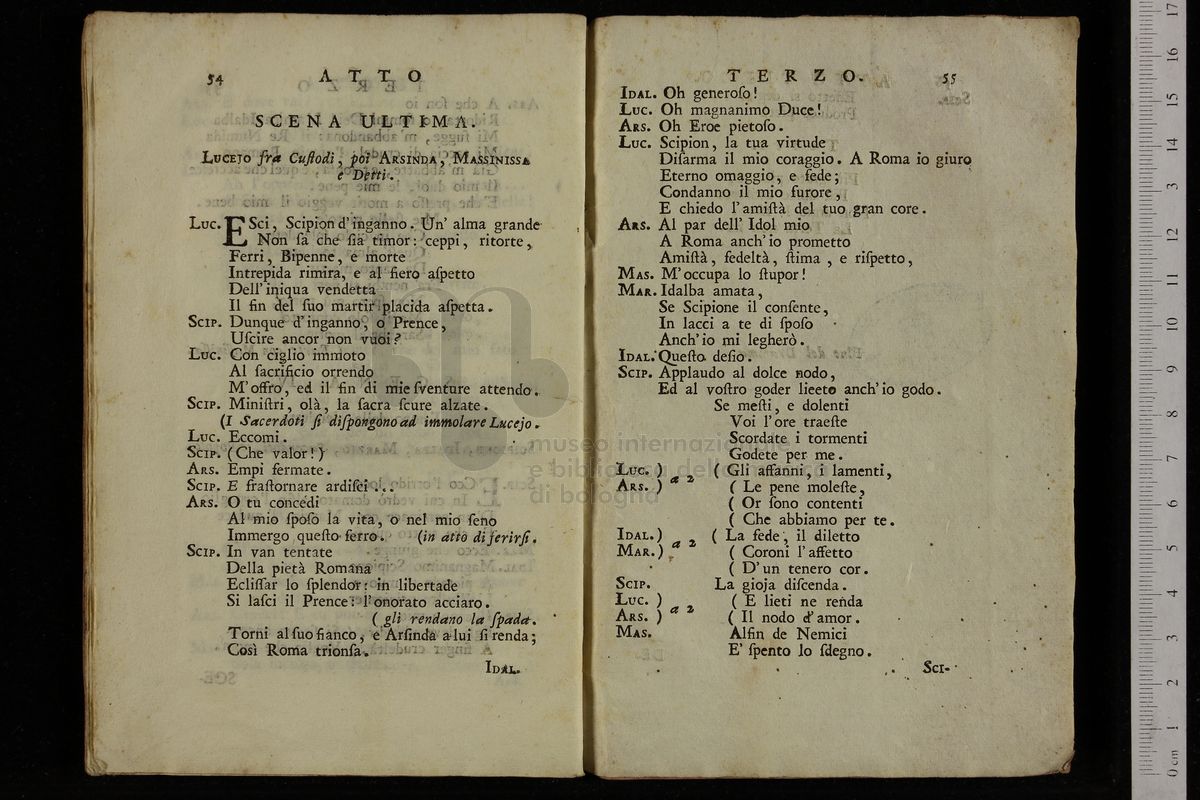 54 ATTO
SCENA ULTIMA.
LUCEJO fra Cuſtodi, poi ARSINDA, MASSINISSA
e Detti.
LUC. ESci, Scipion d'inganno. Un' alma grande
Non ſa che ſia timor: ceppi, ritorte,
Ferri, Bipenne, e morte
Intrepida rimira, e al fiero aſpetto
Dell' iniqua vendetta
Il fin del ſuo martir placida aſpetta.
SCIP. Dunque d'inganno, o Prence,
Uſcire ancor non vuoi?
LUC. Con ciglio immoto
Al ſacrificio orrendo
M'offro, ed il fin di mie ſventure attendo.
SCIP. Miniſtri, olà, la ſacra ſcure alzate.
(I Sacerdoti ſi diſpongono ad immolare Lucejo.
LUC. Eccomi.
SCIP. (Che valor!)
ARS. Empi fermate.
SCIP. E fraſtornare ardiſci...
ARS. O tu concedi
Al mio ſpoſo la vita, o nel mio ſeno
Immergo queſto ferro. (in atto di ferirſi.
SCIP. In van tentate
Della pietà Romana
Ecliſſar lo ſplendor: in libertade
Si laſci il Prence: l'onorato acciaro.
(gli rendano la ſpada.
Torni al ſuo fianco, e Arſinda a lui ſi renda;
Così Roma trionfa.
IDAL.
TERZO. 55
IDAL. Oh generoſo!
LUC. Oh magnanimo Duce!
ARS. Oh Eroe pietoſo.
LUC. Scipion, la tua virtude
Diſarma il mio coraggio. A Roma io giuro
Eterno omaggio, e fede;
Condanno il mio furore,
E chiedo l'amiſtà del tuo gran core.
ARS. Al par dell' Idol mio
A Roma anch'io prometto
Amiſtà, fedeltà, ſtima, e riſpetto,
MAS. M'occupa lo ſtupor!
MAR. Idalba amata,
Se Scipione il conſente,
In lacci a te di ſpoſo
Anch'io mi legherò.
IDAL. Queſto deſio.
SCIP. Applaudo al dolce nodo,
Ed al voſtro goder lieeto anch'io godo.
Se meſti, e dolenti
Voi l'ore traeſte
Scordate i tormenti
Godete per me.
LUC. ) a 2 ( Gli affanni, i lamenti,
ARS. ) ( Le pene moleſte,
( Or ſono contenti
( Che abbiamo per te.
IDAL.) a 2 ( La fede, il diletto
MAR.) ( Coroni l'affetto
( D'un tenero cor.
SCIP. La gioja diſcenda.
LUC. ) a 2 ( E lieti ne renda
ARS. ) ( Il nodo d'amor.
MAS. Alfin de Nemici
E' ſpento lo ſdegno.
SCI-
museo internazionale
e biblioteca della musica
di bologna
0 cm 1 2 3 4 5 6 7 8 9 10 11 12 13 14 15 16 17